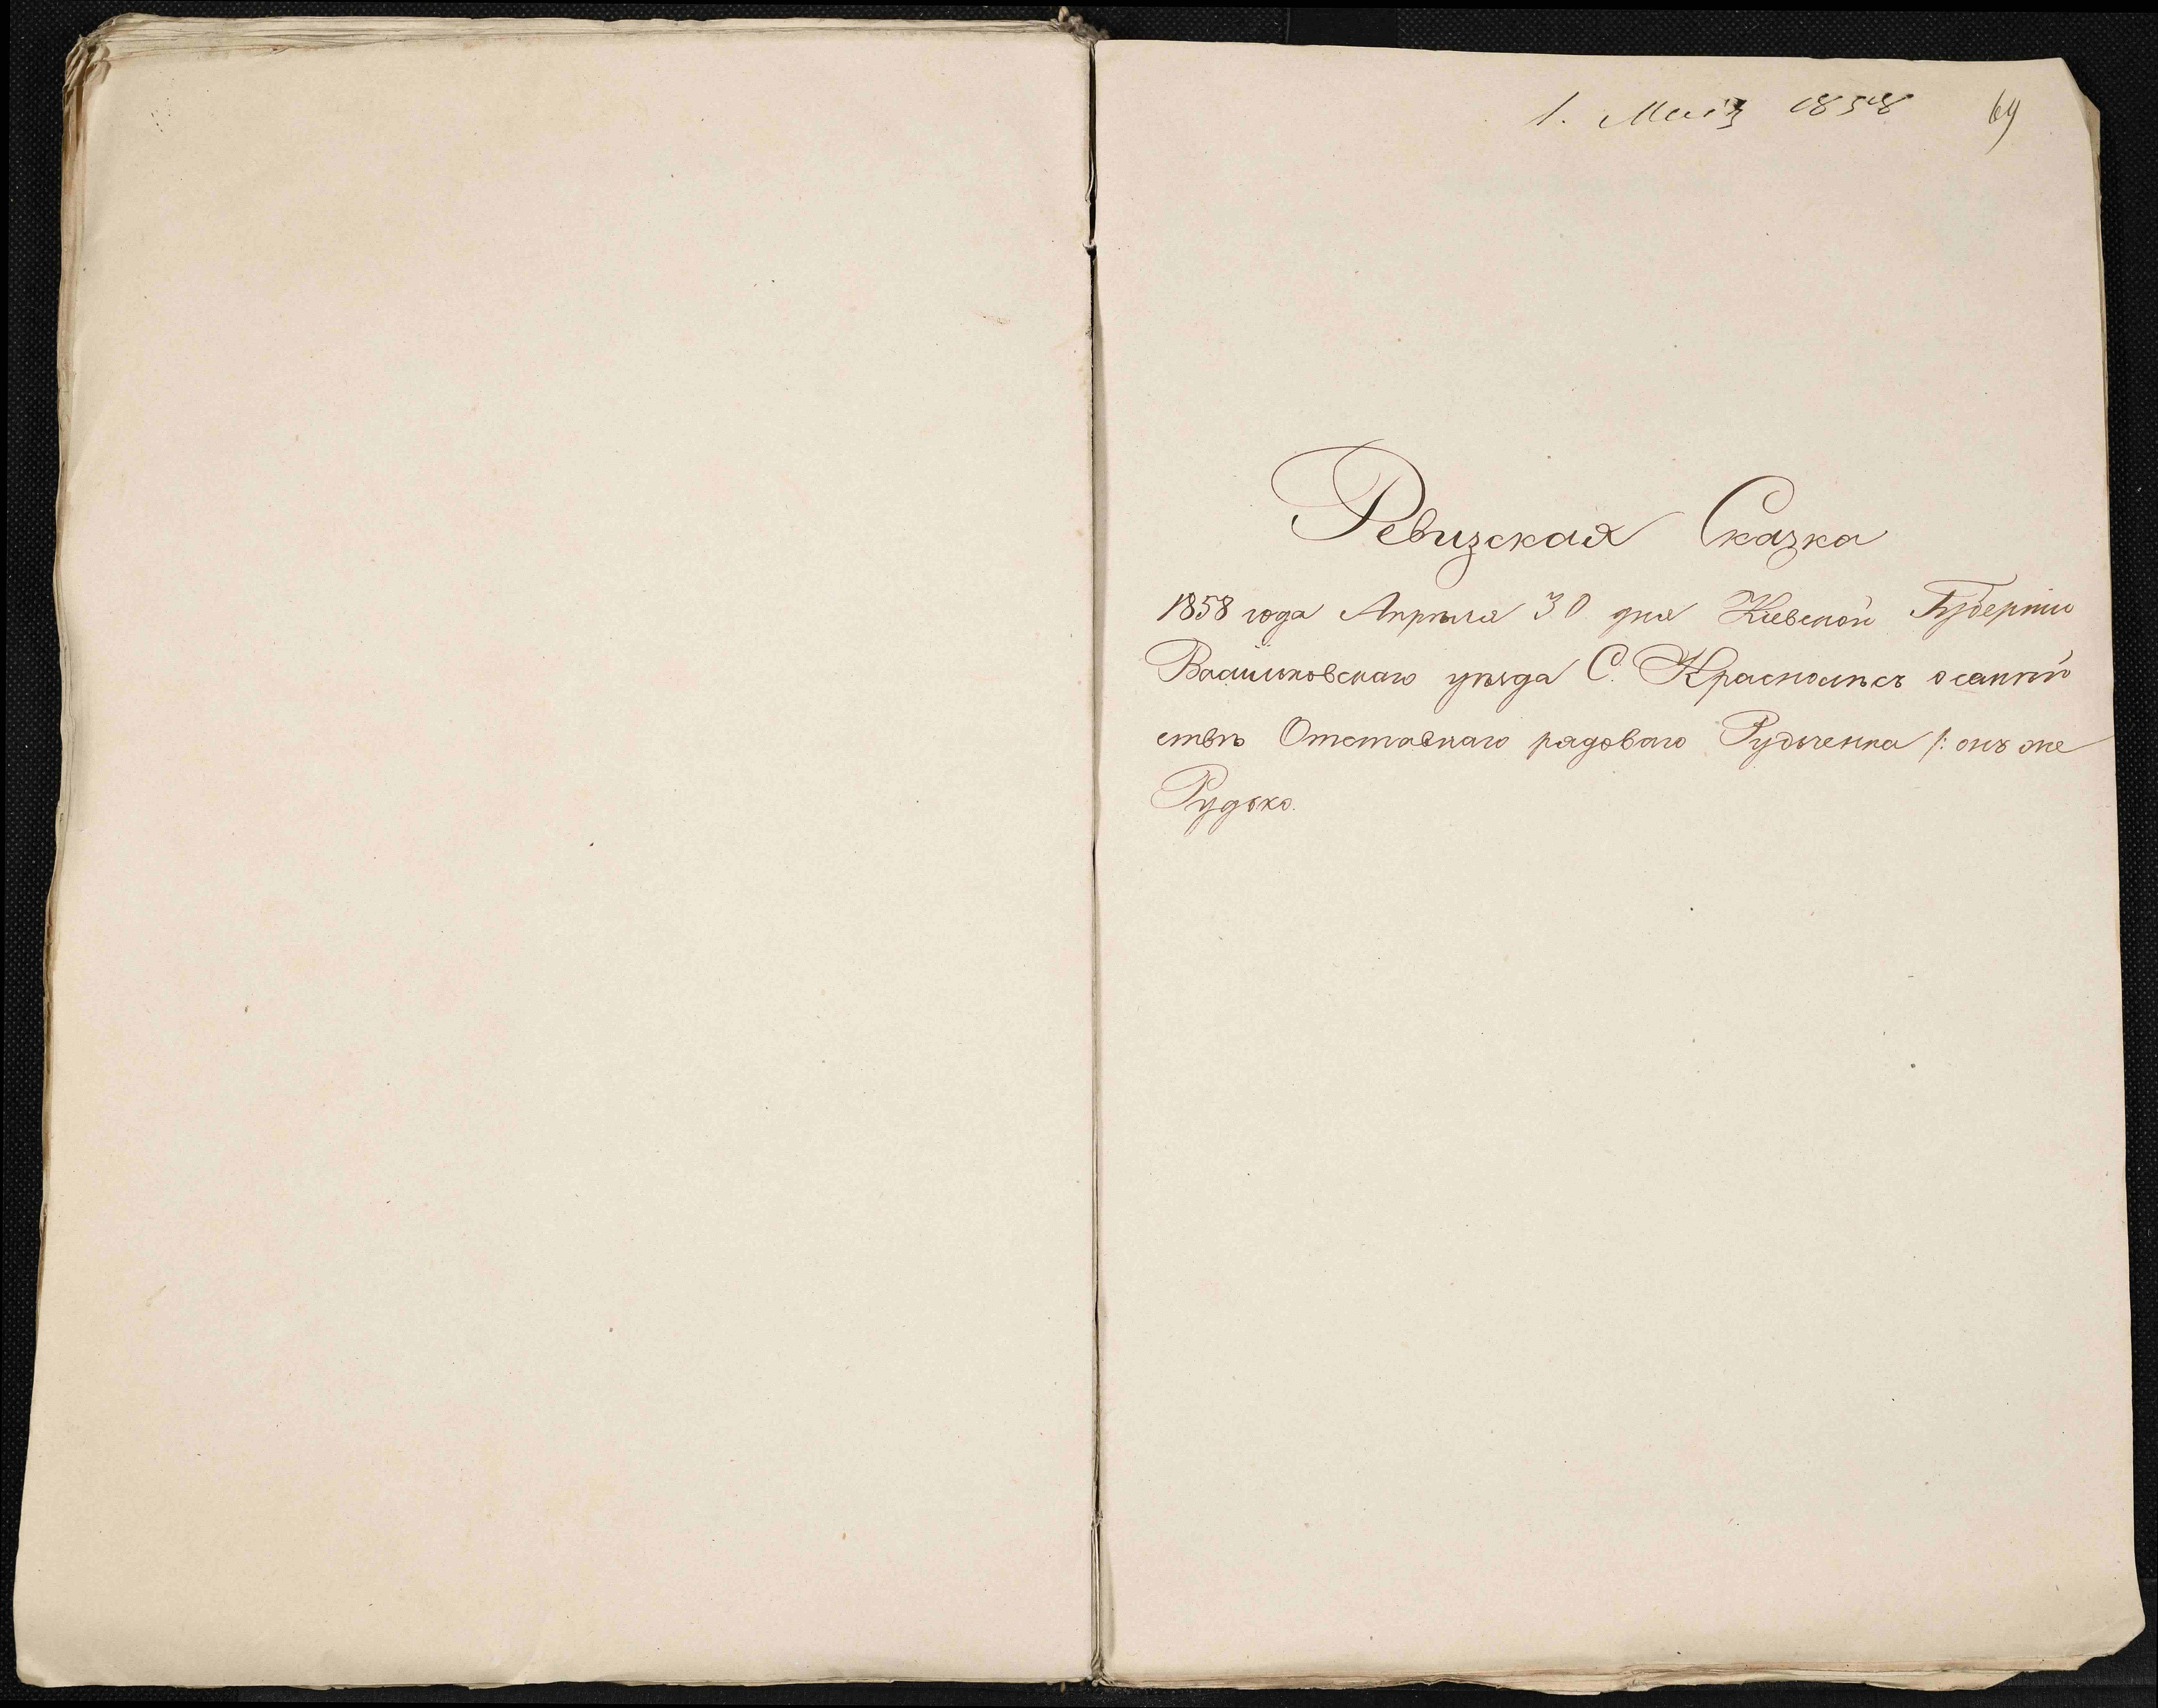 1. Маія 1858 69
Ревизская Сказка
1858 года Апрѣля 30 дня Кіевской Губерніи
Васильковскаго уѣзда С. Краснолѣсъ о семей
ствѣ Отставнаго рядоваго Рудыченка /: онъ же
Рудько.